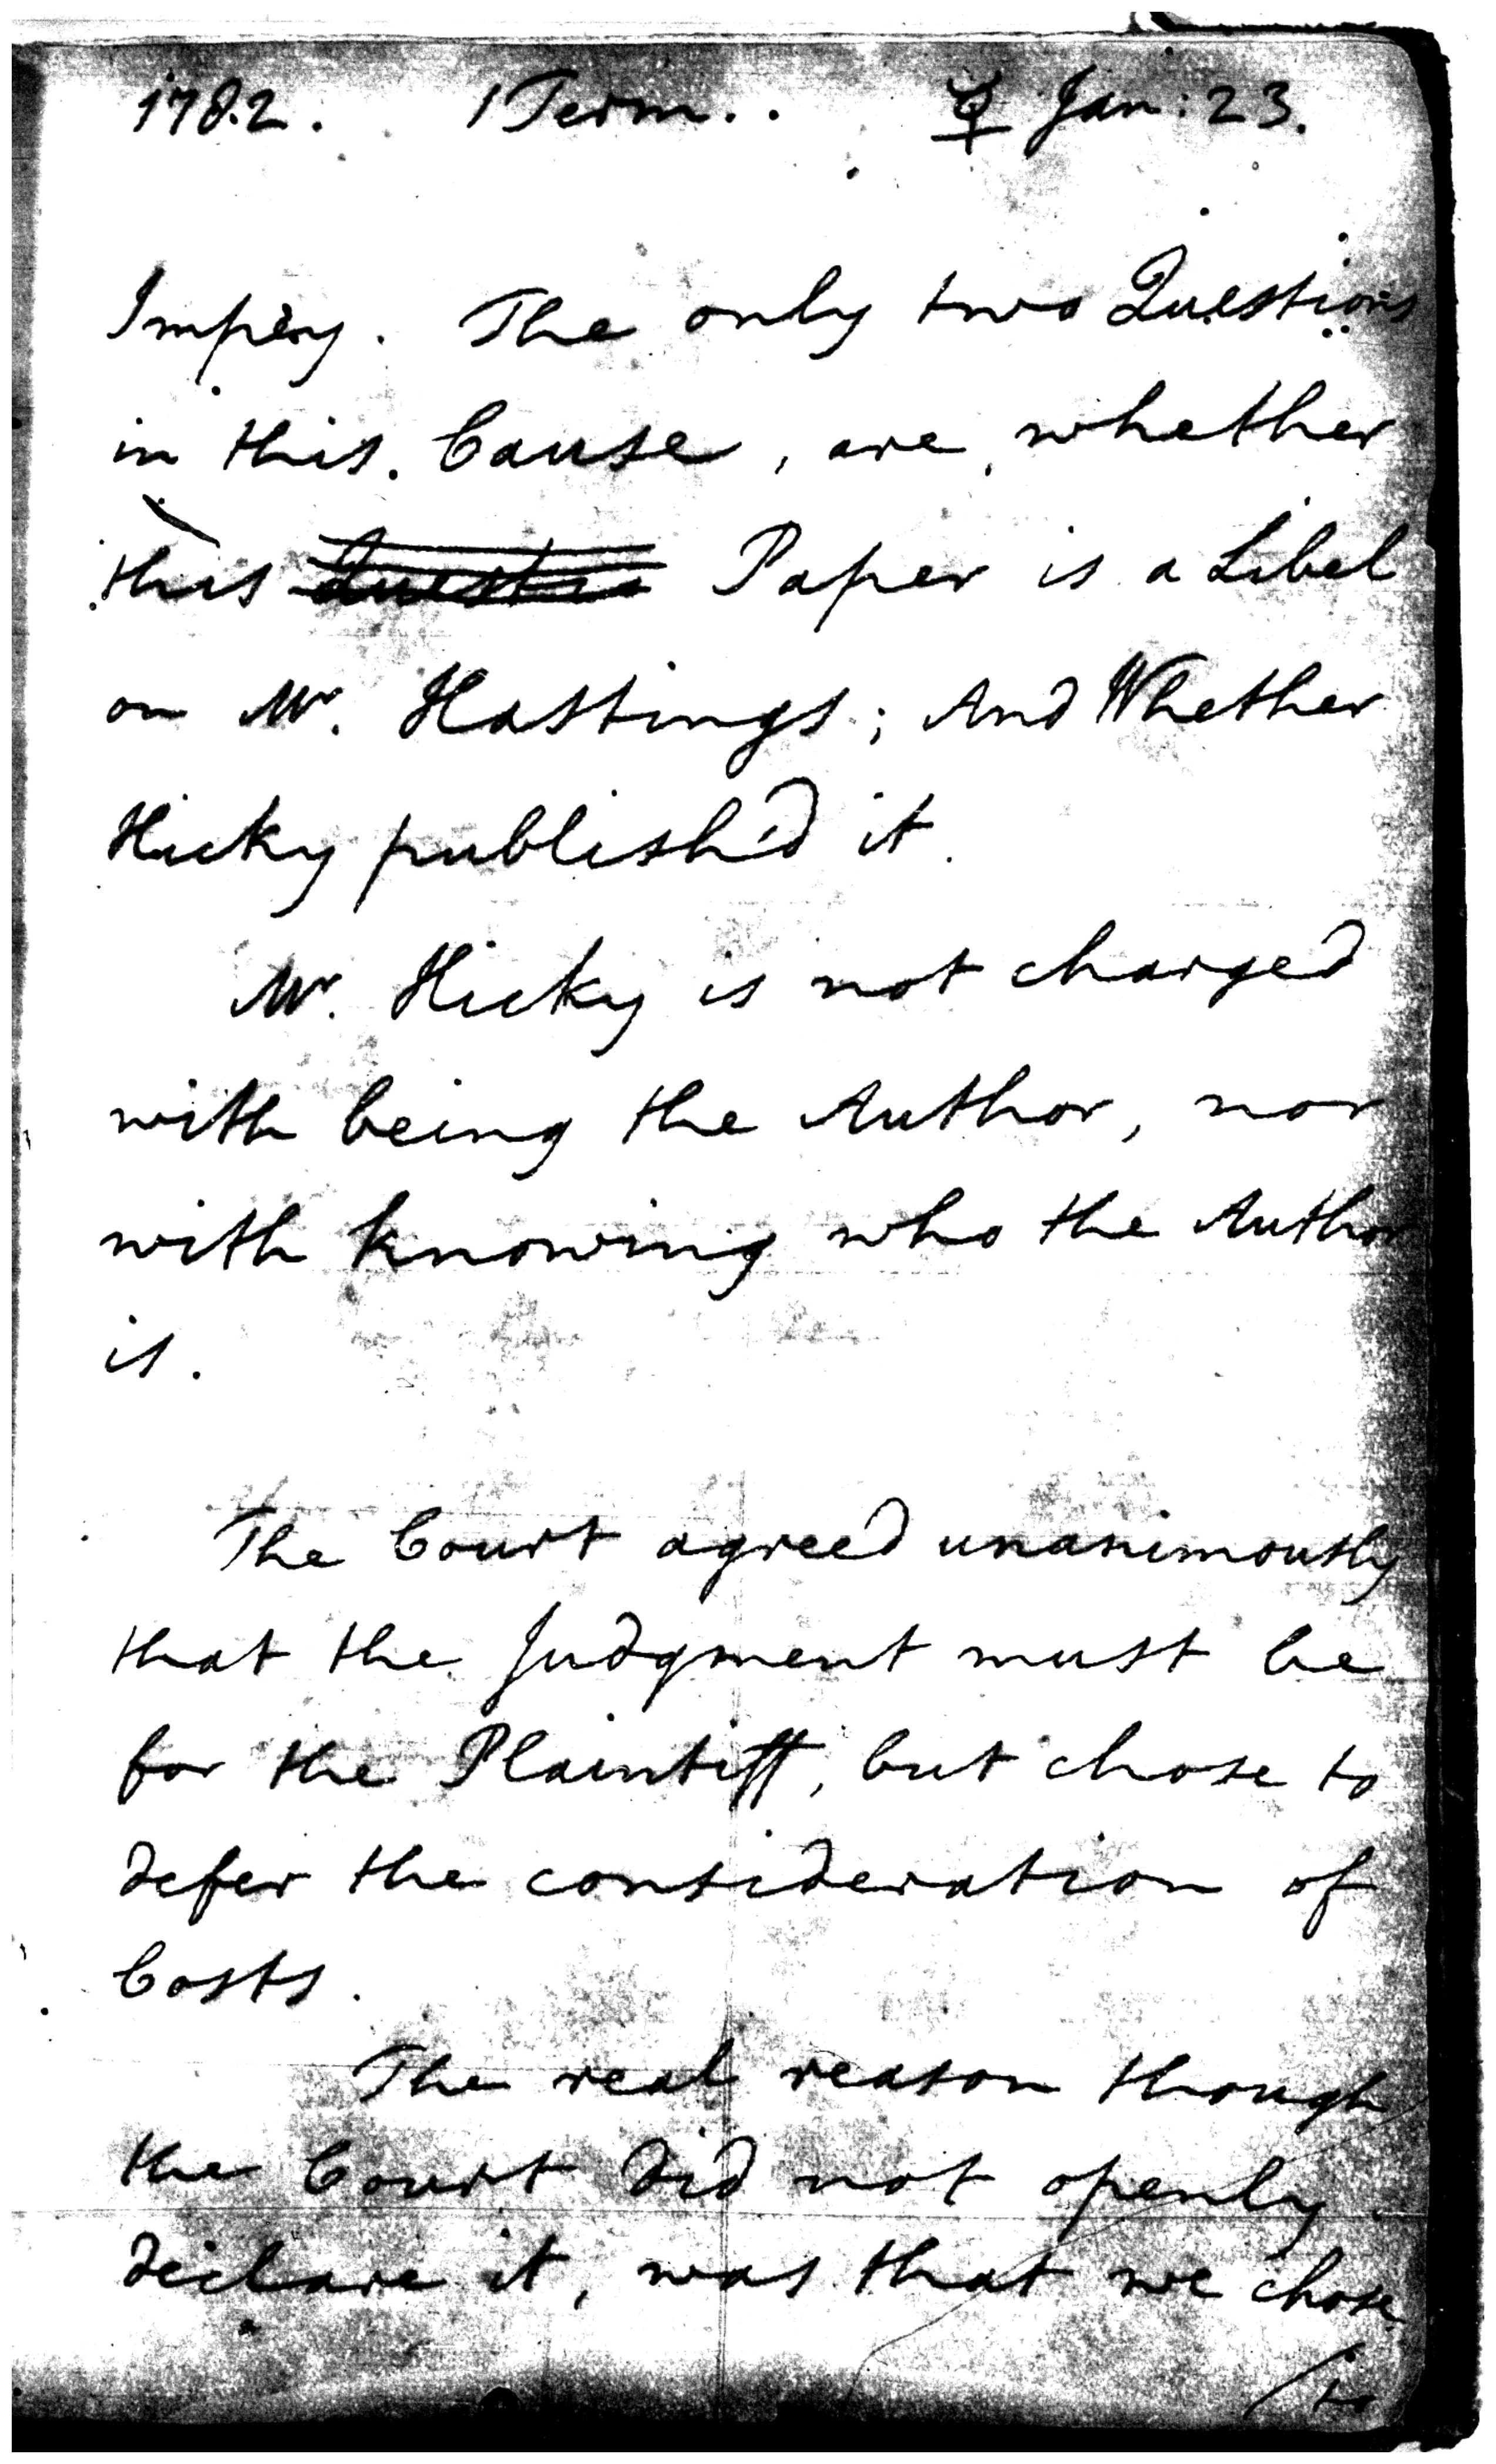 1782. 1 Term.. ☿ Jan: 23.
Impey. The only two Questions
in this Cause, are, whether
this Questio Paper is a Libel
on Mr. Hastings; And Whether
Hicky publish'd it.
Mr. Hicky is not charged
with being the Author, nor
with knowing who the Author
is.
The Court agreed unanimously
that the Judgment must be
for the Plaintiff, but chose to
defer the consideration of
Costs.
The real reason though
the Court did not openly
declare it, was that we chose
/to